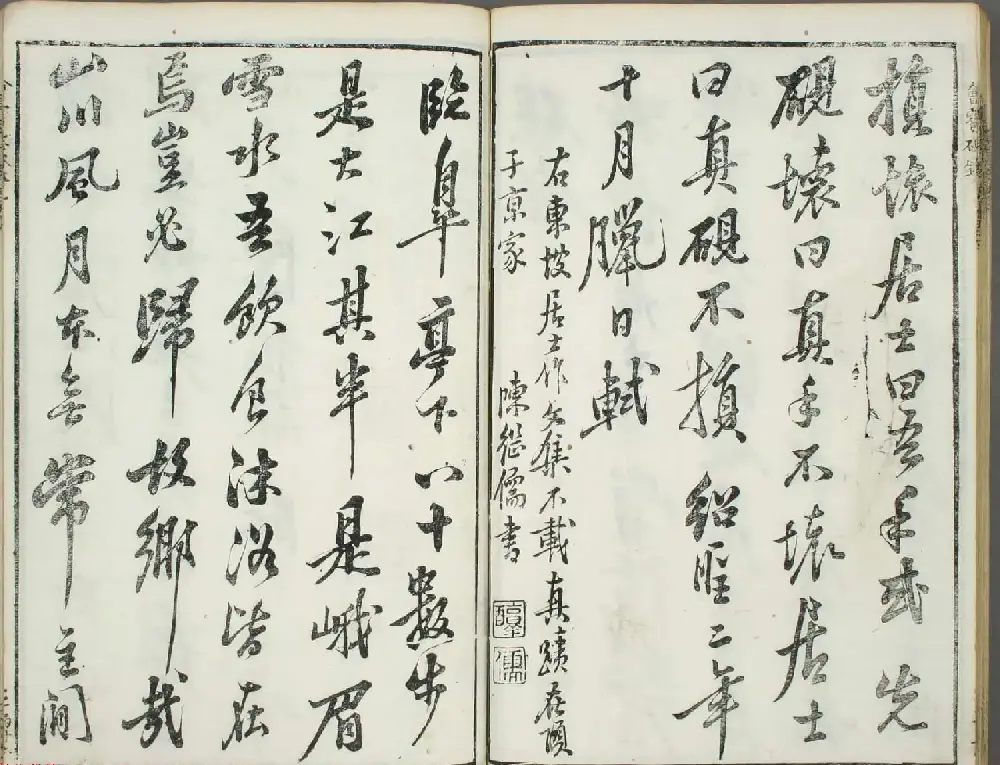 損壞居士曰吾手或先
硯壞曰真手不壞居士
曰真硯不損紹聖二年
十月臘日軾
右東坡居士作文集不載真蹟在項
子京家 陳繼儒書
臨皐亭下八十數步
是大江其半是峨眉
雪水吾飲食沐浴皆在
焉豈必歸故鄉哉
山川風月本無常主閒